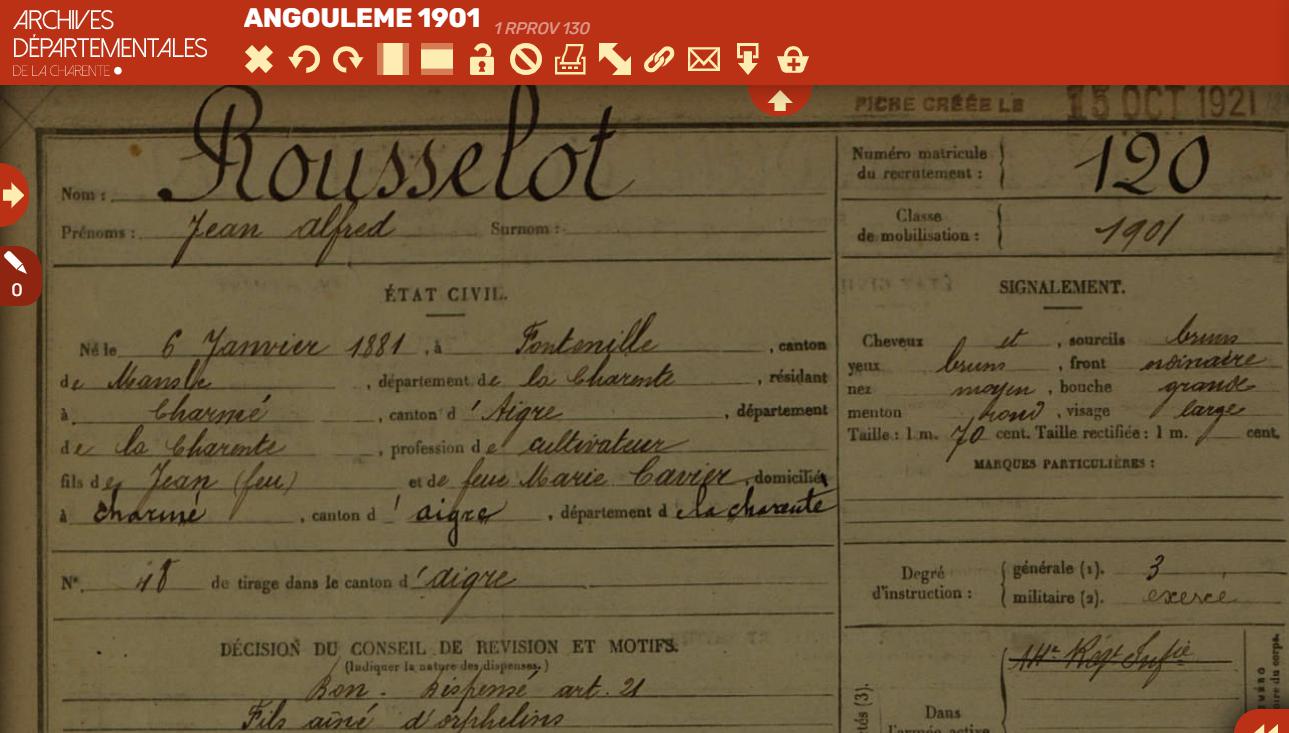 ARCHIVES
DÉPARTEMENTALES
DE LA CHARENTE
ANGOULEME 1901 1 RPROV 130
0
FICHE CRÉÉE LE 15 OCT 1921
Nom : Rousselot
Prénoms : Jean Alfred Surnom :
ÉTAT CIVIL.
Né le 6 Janvier 1881, à Fontenille, canton
de Mansle, département de la Charente, résidant
à Charmé, canton d'Aigre, département
de la Charente, profession de cultivateur
fils de Jean (feu) et de feue Marie Cavier, domiciliés
à charmé, canton d'aigre, département de la charente
N° 48 de tirage dans le canton d'aigre
DÉCISION DU CONSEIL DE REVISION ET MOTIFS.
(Indiquer la nature des dispenses.)
Bon. Dispensé art. 21
Fils aîné d'orphelins
Numéro matricule
du recrutement : 120
Classe
de mobilisation : 1901
SIGNALEMENT.
Cheveux et, sourcils bruns
yeux bruns, front ordinaire
nez moyen, bouche grande
menton rond, visage large
Taille : 1 m. 70 cent. Taille rectifiée : 1 m. cent.
MARQUES PARTICULIÈRES :
Degré
d'instruction :
générale (1). 3
militaire (2). exercé
Régt Infie
Dans
l'armée active